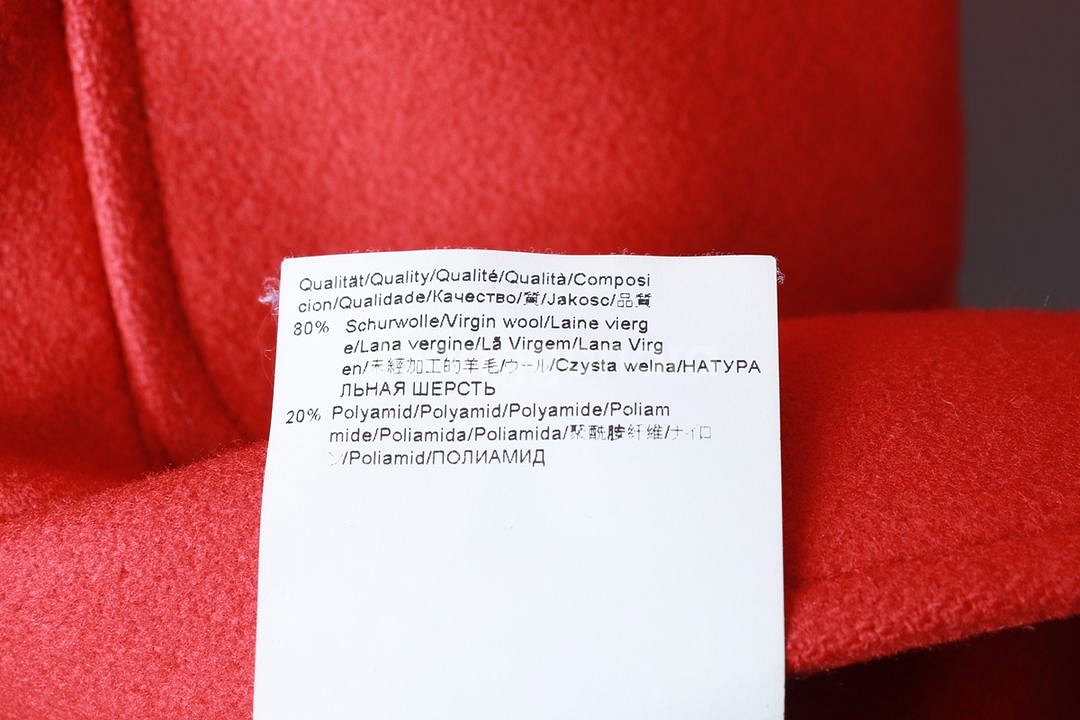 Qualität/Quality/Qualité/Qualità/Composi
cion/Qualidade/Качество/質/Jakosc/品質
80% Schurwolle/Virgin wool/Laine vierg
e/Lana vergine/Lã Virgem/Lana Virg
en/未經加工的羊毛/ウール/Czysta welna/НАТУРА
ЛЬНАЯ ШЕРСТЬ
20% Polyamid/Polyamid/Polyamide/Poliam
mide/Poliamida/Poliamida/聚酰胺纤维/ナイロ
ン/Poliamid/ПОЛИАМИД